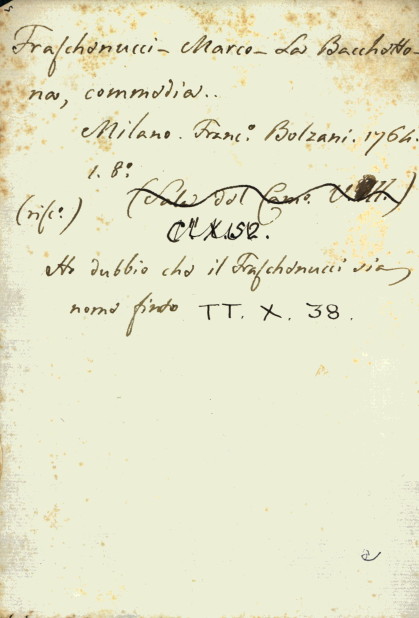 Fraschonucci - Marco - La Bacchetto-
na, commedia..
Milano. Franc.º Bolzani. 1764.
1. 8.º
(risc.º) (Sala del Cam.
CC X.152.
Ho dubbio che il Fraschonucci sia
nome finto TT. X. 38.